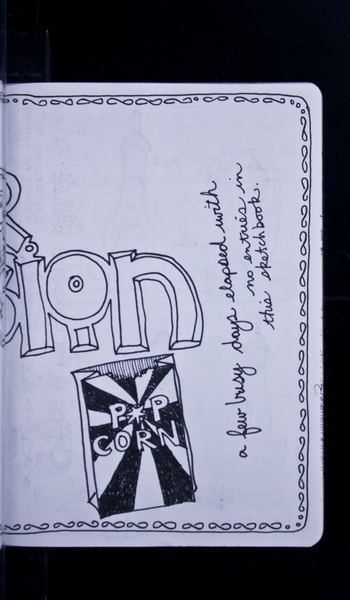 ion
POP
CORN
a few busy days elapsed with
no entries in
this sketchbook.